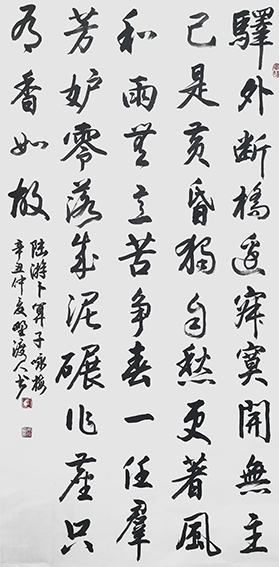 驛外断橋邊寂寞開無主
已是黄昏獨自愁更著風
和雨無意苦争春一任羣
芳妒零落成泥碾作塵只
有香如故
陸游卜算子咏梅
辛丑仲夏野渡人书